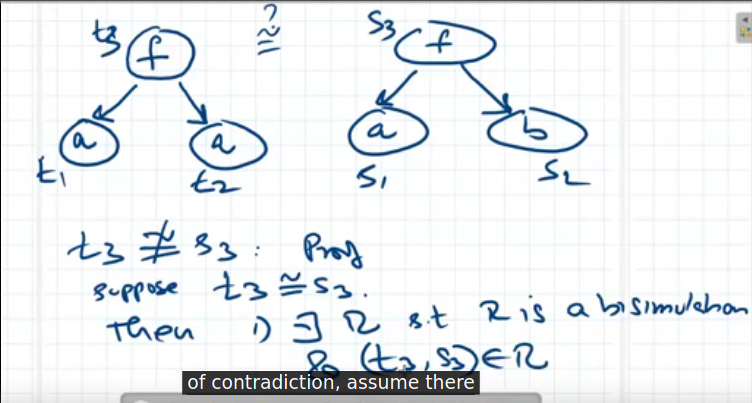 ?
t3 f ≅ s3 f
a a a b
t1 t2 s1 s2
t3 ≇ s3 : Proof
suppose t3 ≅ s3.
Then 1) ∃ R s.t R is a bisimulation
& (t3, s3) ∈ R
of contradiction, assume there